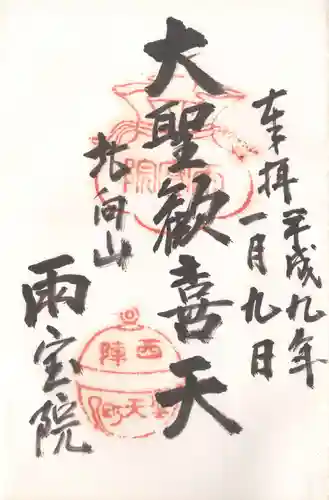 奉拝
平成九年
一月九日
大聖歓喜天
北向山
雨宝院
西陣
聖天町